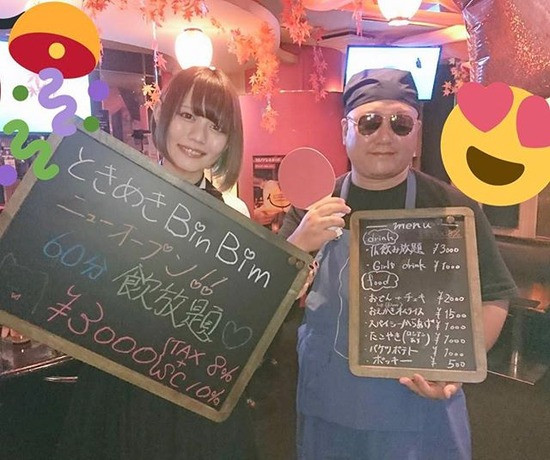 ときめきBinBim
ニューオープン!!
60分 飲放題♡
¥3000 (TAX 8%
+
SC 10%
menu
drink
飲み放題 ¥3000
・Girls drink ¥1000
food
おでん+チェキ ¥2000
おえかきオムライス ¥1500
¥1000
・たこやき(ロシアンあり) ¥1000
・バケツポテト ¥1000
・ポッキー ¥500